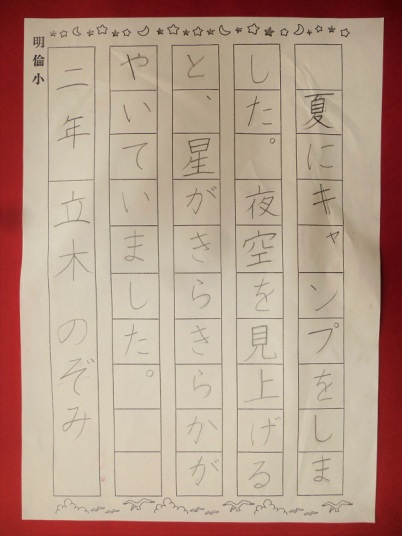 夏にキャンプをしま
した。夜空を見上げる
と、星がきらきらかが
やいていました。
二年 立木 のぞみ
明倫小